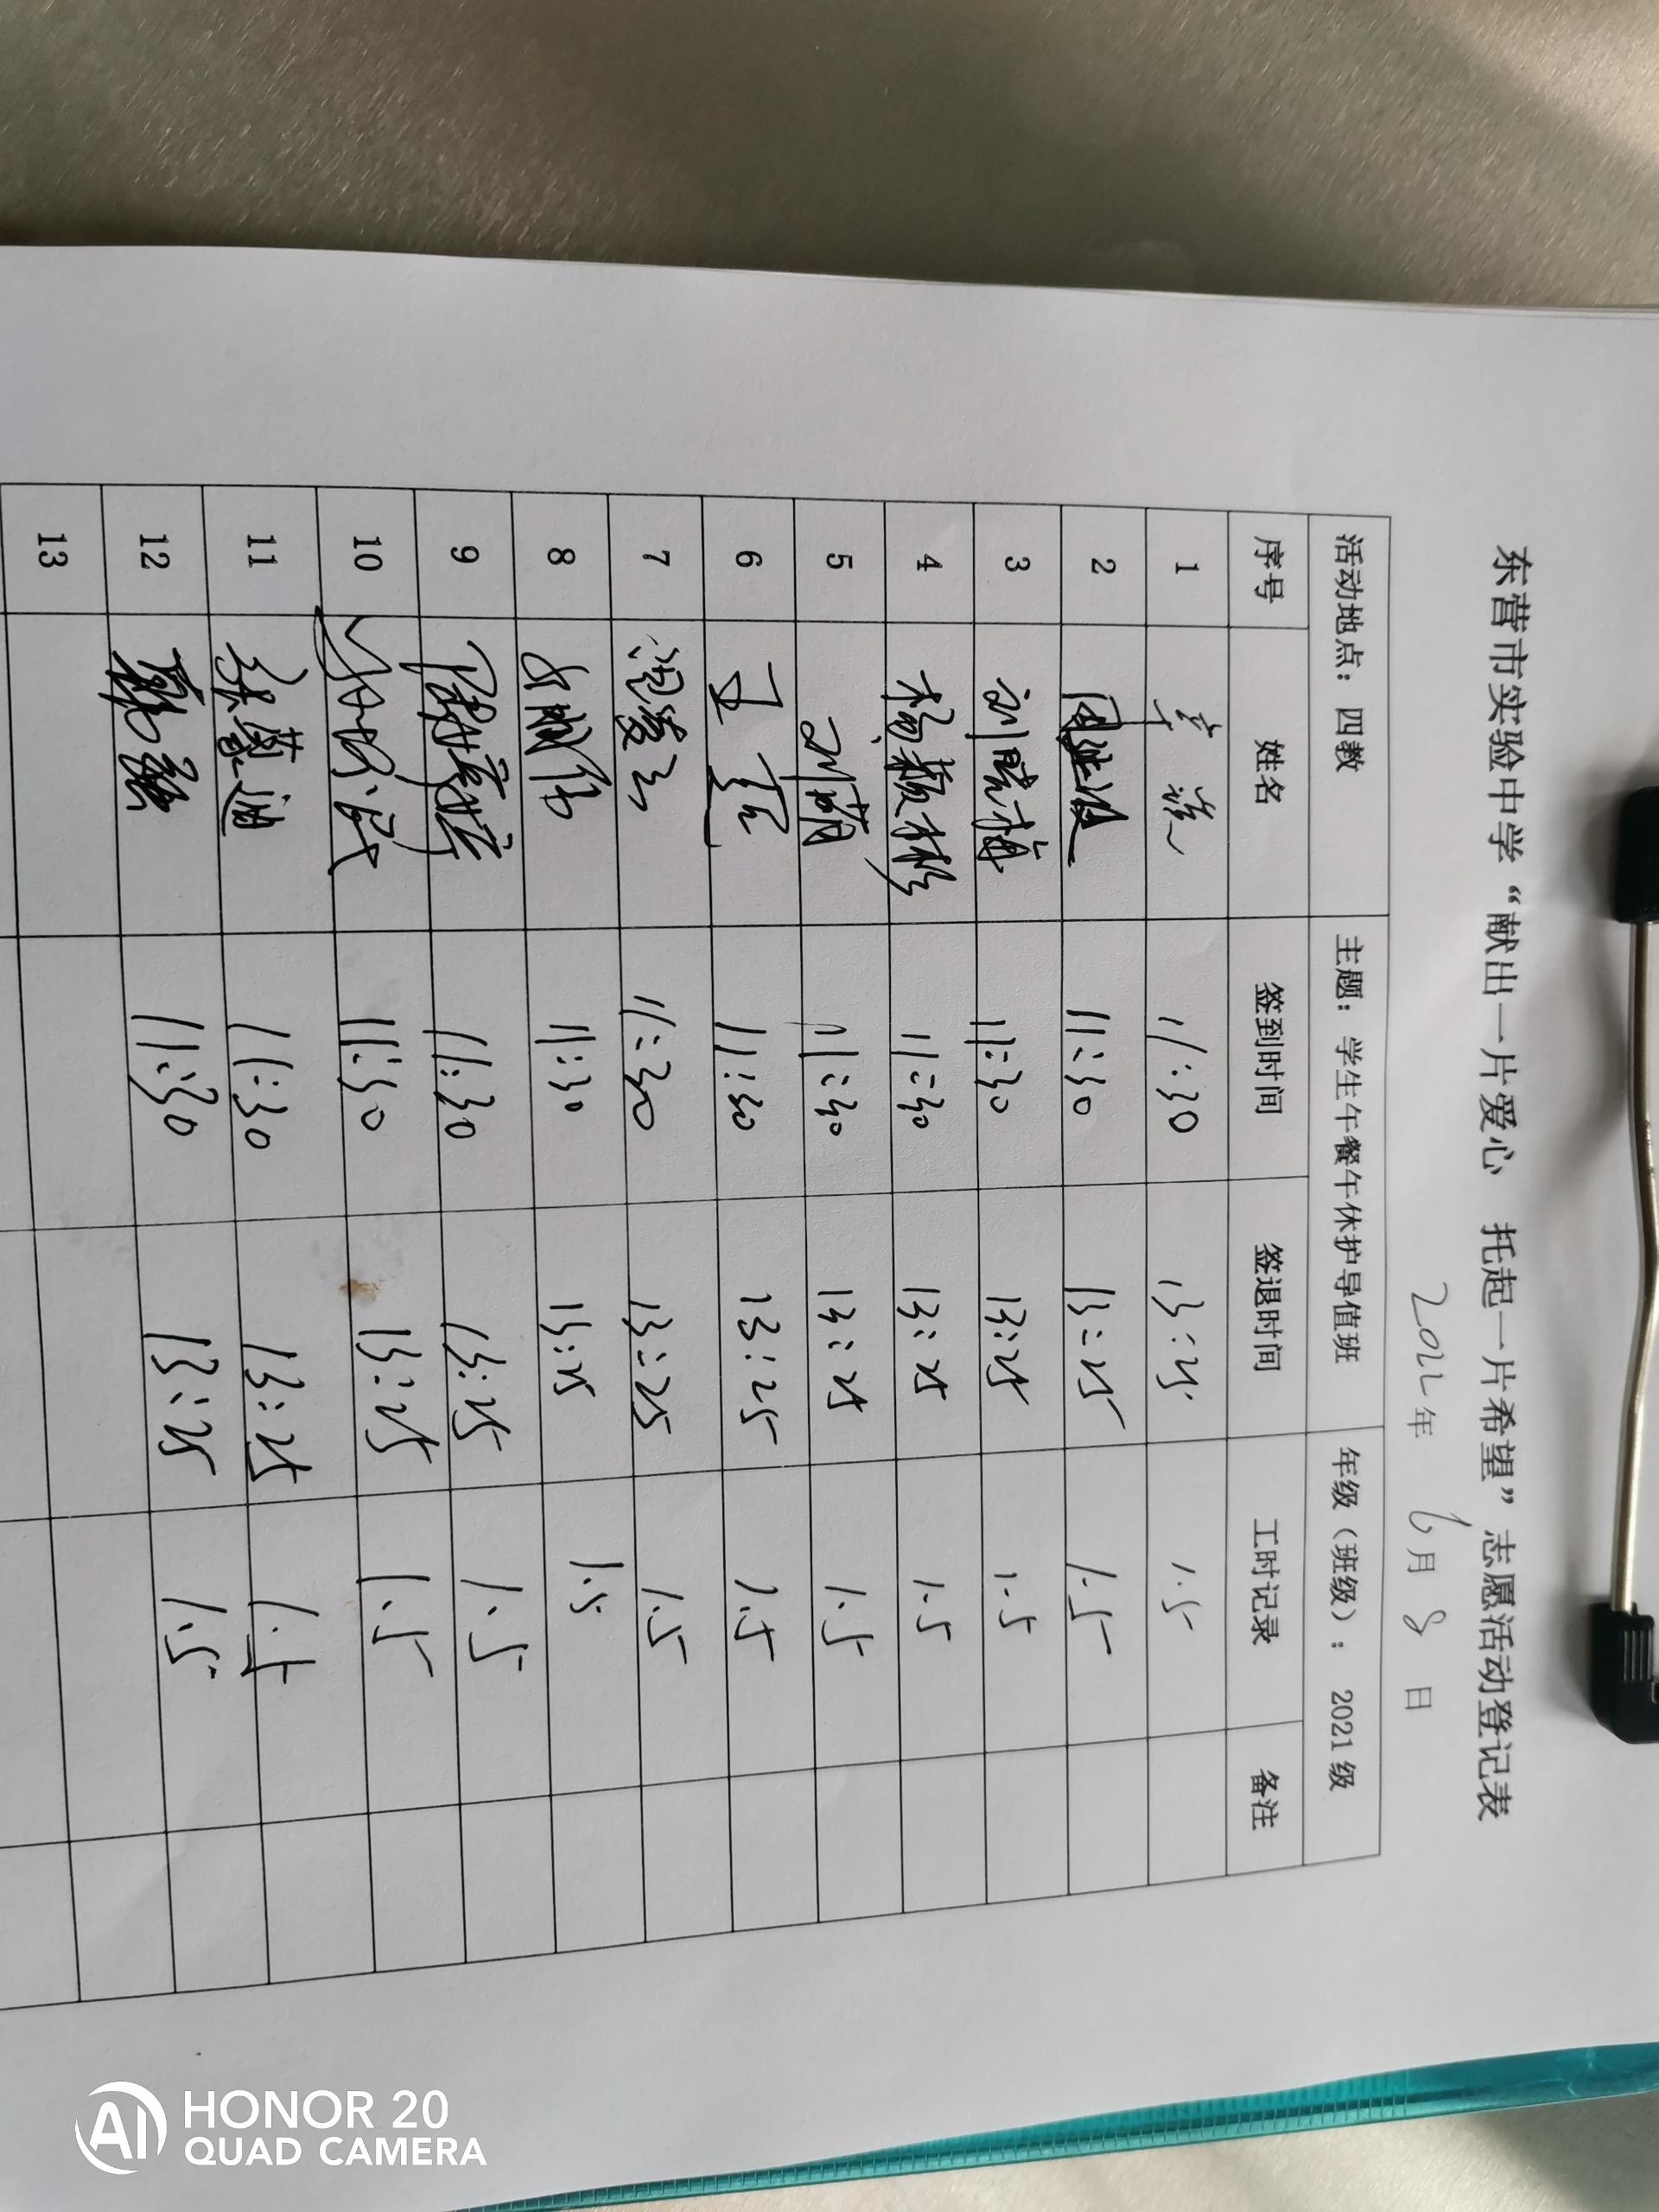 东营市实验中学“献出一片爱心 托起一片希望”志愿活动登记表
2022年 6月 8日
活动地点：四教 主题：学生午餐午休护导值班 年级（班级）： 2021级
序号 姓名 签到时间 签退时间 工时记录 备注
1 11:30 13:25 1.5
2 11:30 13:25 1.5
3 刘晓梅 11:30 13:25 1.5
4 杨颖彬 11:30 13:25 1.5
5 刘萌 11:30 13:25 1.5
6 11:30 13:25 1.5
7 11:30 13:25 1.5
8 11:30 13:25 1.5
9 11:30 13:25 1.5
10 11:30 13:25 1.5
11 张蒙迪 11:30 13:25 1.5
12 11:30 13:25 1.5
13
HONOR 20
AI QUAD CAMERA